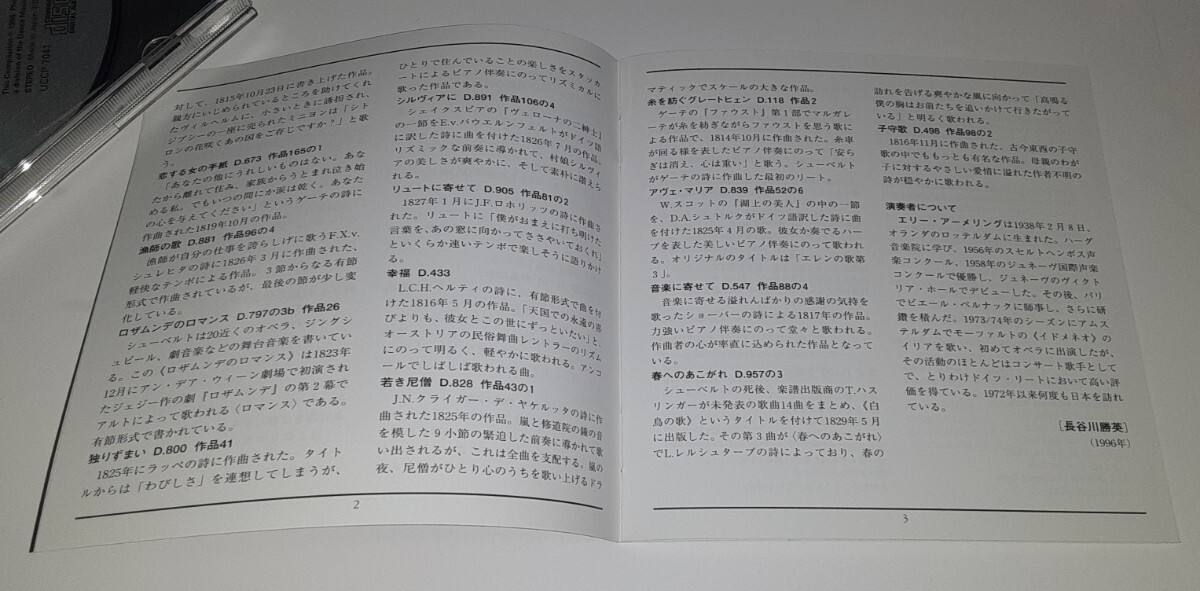 This Compilation ℗ 1996, Phi
a division of the Decca Music
STEREO Made in Japan
UCCP-7041
対して、1815年10月23日に書き上げた作品。
親方にいじめられているところを助けてくれ
たヴィルヘルムに、小さいときに誘拐され、
ジプシーの一座に売られたミニヨンは「シト
ロンの花咲くあの国をご存じですか？」と歌
う。
恋する女の手紙 D.673 作品165の1
「あなたの他にうれしいものはない。あな
たから離れて住み、家族からうとまれ泣き始
める私。でもいつの間にか涙は乾く。あなた
の心を与えてください」というゲーテの詩に
作曲された1819年10月の作品。
漁師の歌 D.881 作品96の4
漁師が自分の仕事を誇らしげに歌うF.X.v.
シュレヒタの詩に1826年3月に作曲された、
軽快なテンポによる作品。3節からなる有節
形式で作曲されているが、最後の節が少し変
化している。
ロザムンデのロマンス D.797の3b 作品26
シューベルトは20近くのオペラ、ジングシ
ュピール、劇音楽などの舞台音楽を書いてい
る。この《ロザムンデのロマンス》は1823年
12月にアン・デア・ウィーン劇場で初演され
たジェジー作の劇『ロザムンデ』の第2幕で
アルトによって歌われる〈ロマンス〉である。
有節形式で書かれている。
独りずまい D.800 作品41
1825年にラッペの詩に作曲された。タイト
ルからは「わびしさ」を連想してしまうが、
ひとりで住んでいることの楽しさをスタッカ
ートによるピアノ伴奏にのってリズミカルに
歌った作品である。
シルヴィアに D.891 作品106の4
シェイクスピアの『ヴェローナの二紳士』
の一節をE.v.バウエルンフェルトがドイツ語
に訳した詩に曲を付けた1826年7月の作品。
リズミックな前奏に導かれて、村娘シルヴィ
アの美しさが爽やかに、そして素朴に讃えら
れる。
リュートに寄せて D.905 作品81の2
1827年1月にJ.F.ロホリッツの詩に作曲さ
れた。リュートに「僕がおまえに打ち明けた
言葉を、あの窓に向かってささやいておくれ」
といくらか速いテンポで楽しそうに語りかけ
る。
幸福 D.433
L.C.H.ヘルティの詩に、有節形式で曲を付
けた1816年5月の作品。「天国での永遠の喜
びよりも、彼女とこの世にずっといたい」と、
オーストリアの民俗舞曲レントラーのリズム
にのって明るく、軽やかに歌われる。アンコ
ールでしばしば歌われる曲。
若き尼僧 D.828 作品43の1
J.N.クライガー・デ・ヤケルッタの詩に作
曲された1825年の作品。嵐と修道院の鐘の音
を模した9小節の緊迫した前奏に導かれて歌
い出されるが、これは全曲を支配する。嵐の
夜、尼僧がひとり心のうちを歌い上げるドラ
2
マティックでスケールの大きな作品。
糸を紡ぐグレートヒェン D.118 作品2
ゲーテの『ファウスト』第1部でマルガレ
ーテが糸を紡ぎながらファウストを思う歌に
よる作品で、1814年10月に作曲された。糸車
が回る様を表したピアノ伴奏にのって「安ら
ぎは消え、心は重い」と歌う。シューベルト
がゲーテの詩に作曲した最初のリート。
アヴェ・マリア D.839 作品52の6
W.スコットの『湖上の美人』の中の一節
を、D.A.シュトルクがドイツ語訳した詩に曲
を付けた1825年4月の歌。彼女が奏でるハー
プを表した美しいピアノ伴奏にのって歌われ
る。オリジナルのタイトルは「エレンの歌第
3」。
音楽に寄せて D.547 作品88の4
音楽に寄せる溢れんばかりの感謝の気持を
歌ったショーバーの詩による1817年の作品。
力強いピアノ伴奏にのって堂々と歌われる。
作曲者の心が率直に込められた作品となって
いる。
春へのあこがれ D.957の3
シューベルトの死後、楽譜出版商のT.ハス
リンガーが未発表の歌曲14曲をまとめ、《白
鳥の歌》というタイトルを付けて1829年5月
に出版した。その第3曲が〈春へのあこがれ〉
でL.レルシュタープの詩によっており、春の
訪れを告げる爽やかな風に向かって「高鳴る
僕の胸はお前たちを追いかけて行きたがって
いる」と明るく歌われる。
子守歌 D.498 作品98の2
1816年11月に作曲された、古今東西の子守
歌の中でももっとも有名な作品。母親のわが
子に対するやさしい愛情に溢れた作者不明の
詩が穏やかに歌われる。
演奏者について
エリー・アーメリングは1938年2月8日、
オランダのロッテルダムに生まれた。ハーグ
音楽院に学び、1956年のスヘルトヘンボス声
楽コンクール、1958年のジュネーヴ国際声楽
コンクールで優勝し、ジュネーヴのヴィクト
リア・ホールでデビューした。その後、パリ
でピエール・ベルナックに師事し、さらに研
鑽を積んだ。1973/74年のシーズンにアムス
テルダムでモーツァルトの《イドメネオ》の
イリアを歌い、初めてオペラに出演したが、
その活動のほとんどはコンサート歌手として
で、とりわけドイツ・リートにおいて高い評
価を得ている。1972年以来何度も日本を訪れ
ている。
[長谷川勝英]
(1996年)
3